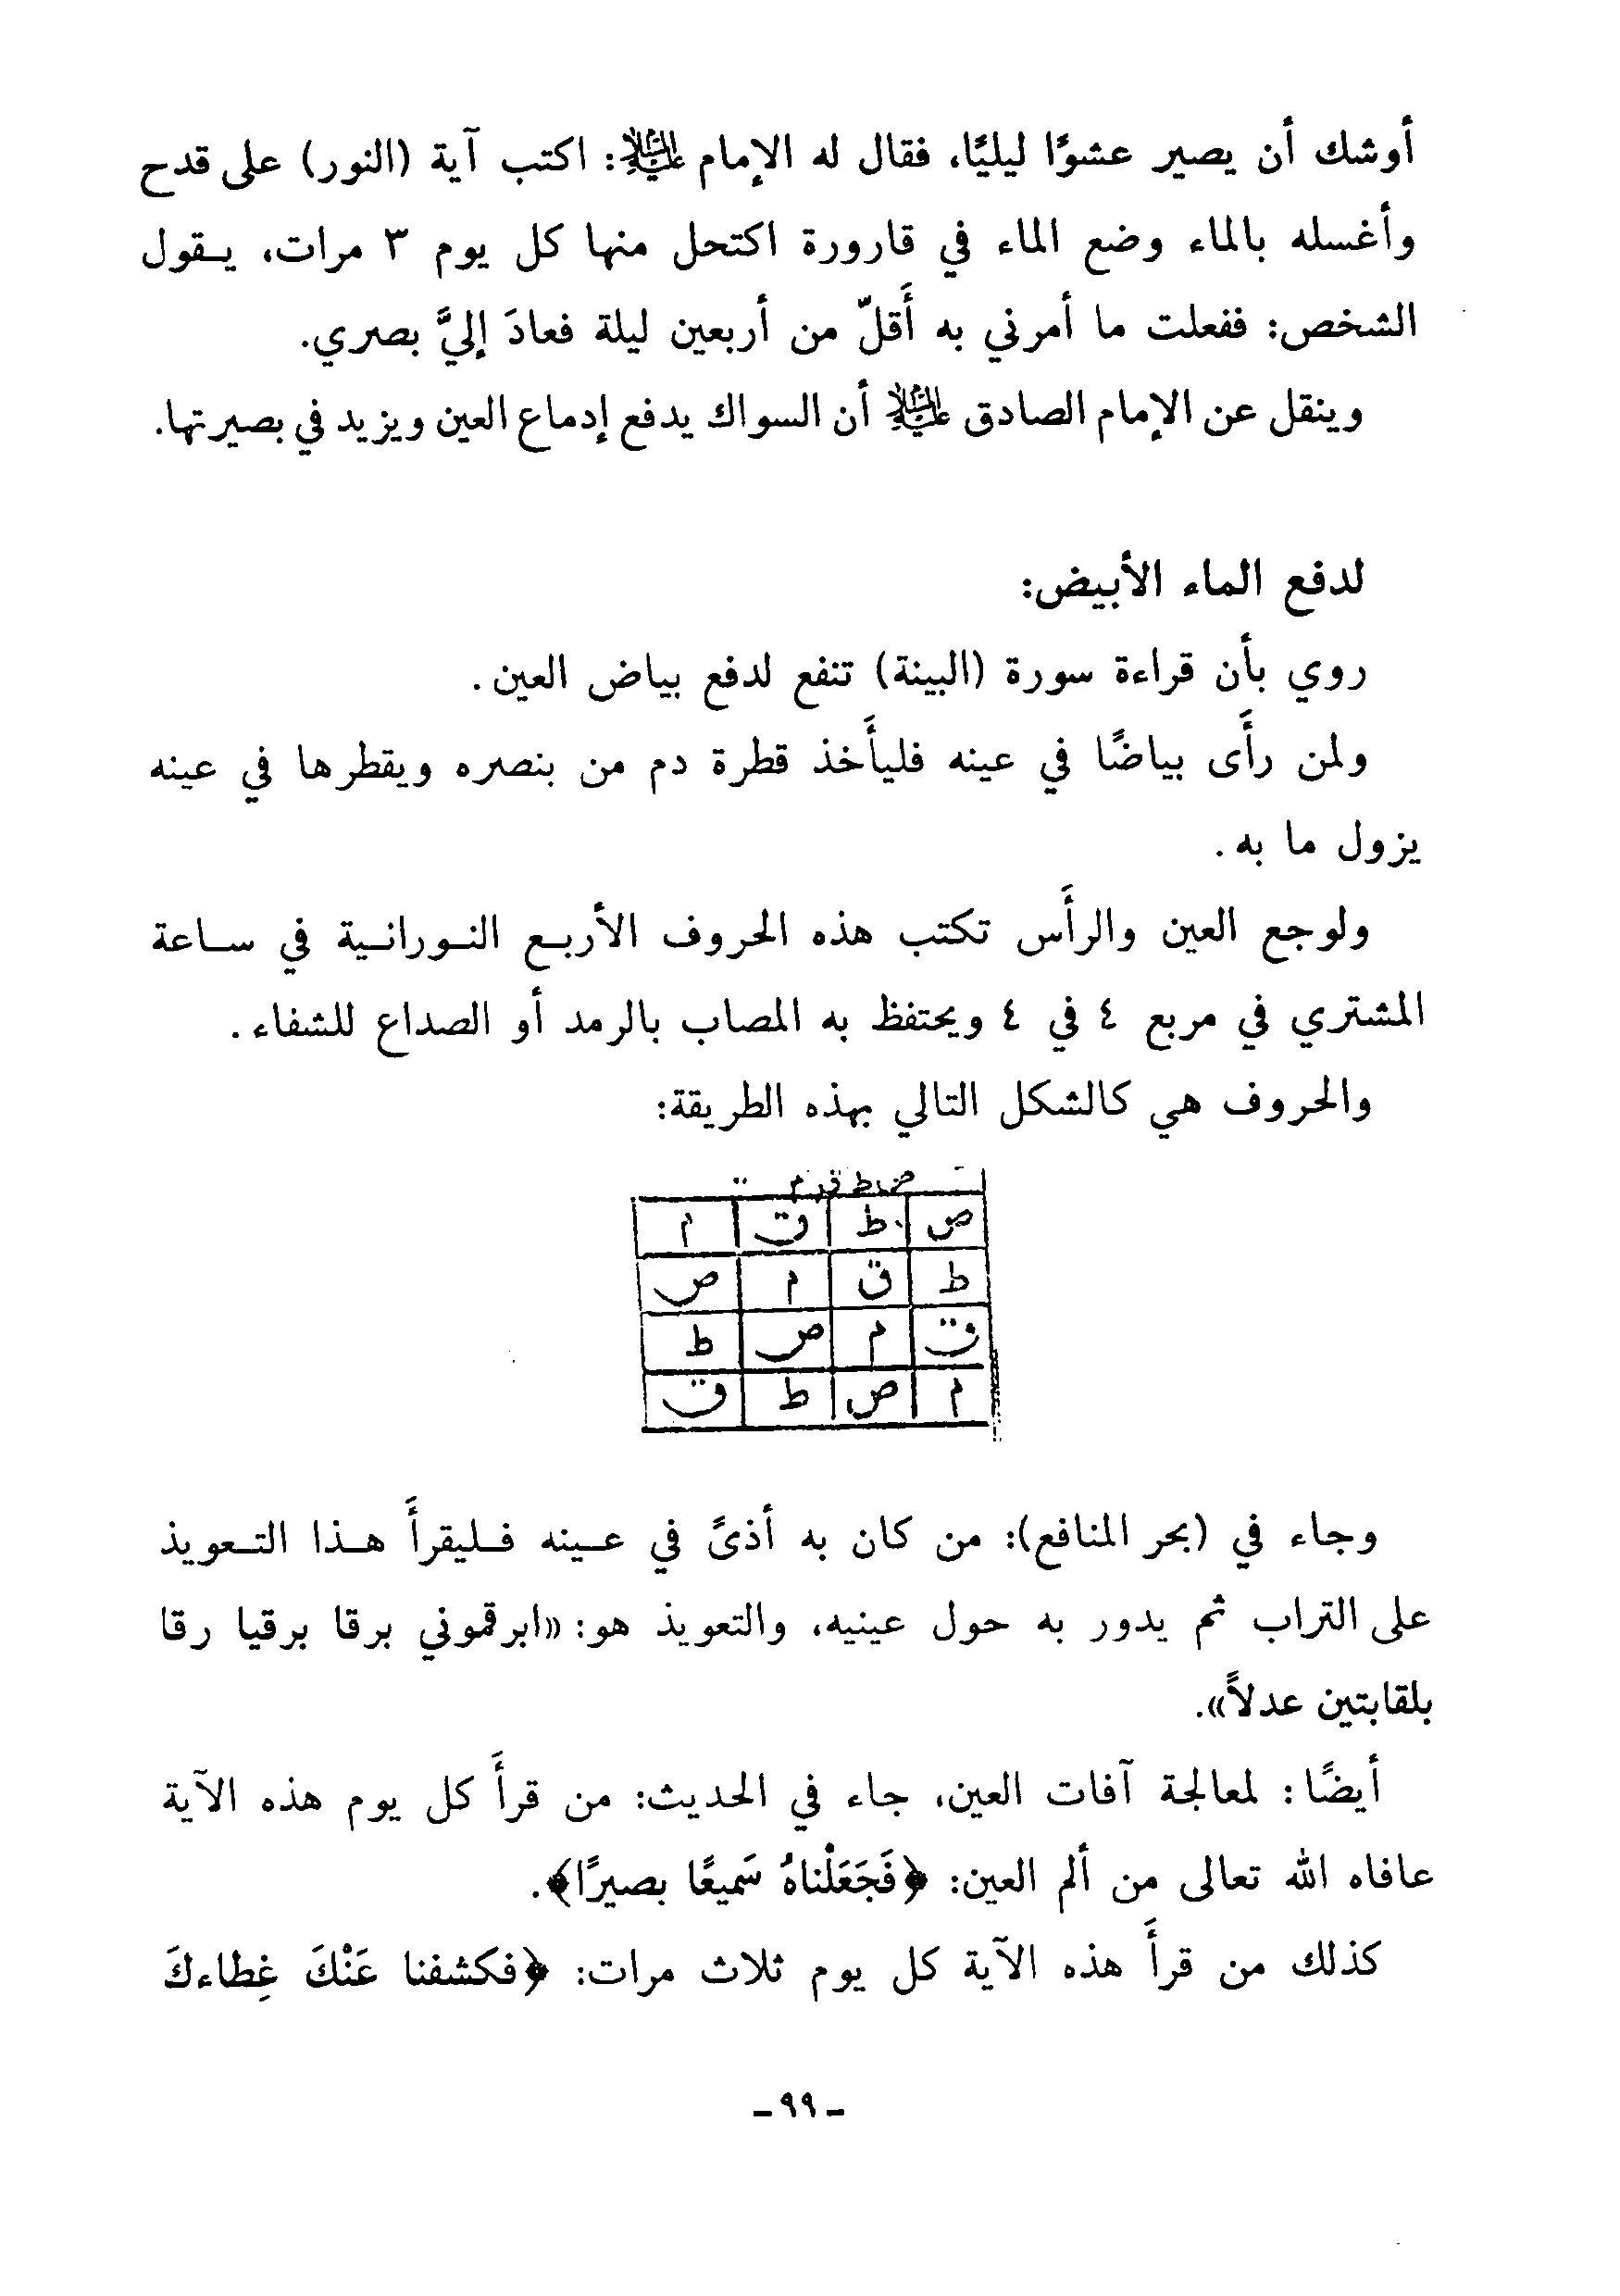 أوشك أن يصير عشوًا ليليًا، فقال له الإمام عليه السلام: اكتب آية (النور) على قدح
وأغسله بالماء وضع الماء في قارورة اكتحل منها كل يوم ٣ مرات، يـقول
الشخص: ففعلت ما أمرني به أَقلّ من أربعين ليلة فعادَ إليَّ بصري.
وينقل عن الإمام الصادق عليه السلام أن السواك يدفع إدماع العين ويزيد في بصيرتها.
لدفع الماء الأبيض:
روي بأن قراءة سورة (البينة) تنفع لدفع بياض العين.
ولمن رأَى بياضًا في عينه فليأَخذ قطرة دم من بنصره ويقطرها في عينه
يزول ما به.
ولوجع العين والرأَس تكتب هذه الحروف الأربـع النـورانـية في سـاعة
المشتري في مربع ٤ في ٤ ويحتفظ به المصاب بالرمد أو الصداع للشفاء.
والحروف هي كالشكل التالي بهذه الطريقة:
ص ط ق م
ص ط ق م
ط ق م ص
ق م ص ط
م ص ط ق
وجاء في (بحر المنافع): من كان به أذىً في عـينه فـليقرأَ هـذا التـعويذ
على التراب ثم يدور به حول عينيه، والتعويذ هو: «ابرقموني برقا برقيا رقا
بلقابتين عدلاً».
أيضًا: لمعالجة آفات العين، جاء في الحديث: من قرأَ كل يوم هذه الآية
عافاه الله تعالى من ألم العين: ﴿فَجَعَلْناهُ سَميعًا بصيرًا﴾.
كذلك من قرأَ هذه الآية كل يوم ثلاث مرات: ﴿فكشفنا عَنْكَ غِطاءكَ
ـ ٩٩ ـ